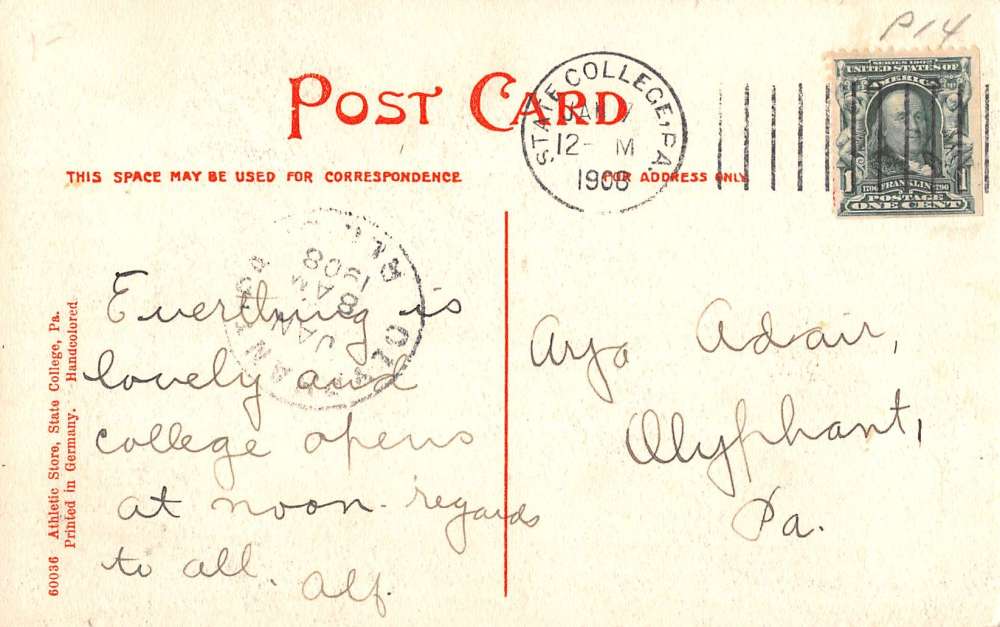 P14
POST CARD
THIS SPACE MAY BE USED FOR CORRESPONDENCE
FOR ADDRESS ONLY
STATE COLLEGE, PA.
JAN 7
12- M
1908
SERIES 1902
UNITED STATES OF
AMERICA
1 1706 FRANKLIN 1790 1
POSTAGE
ONE CENT
JAN
8 AM
1908
Everthing is
lovely and
college opens
at noon. regards
to all. Alf.
Adair,
Olyphant,
Pa.
60036 Athletic Store, State College, Pa.
Printed in Germany. Handcolored